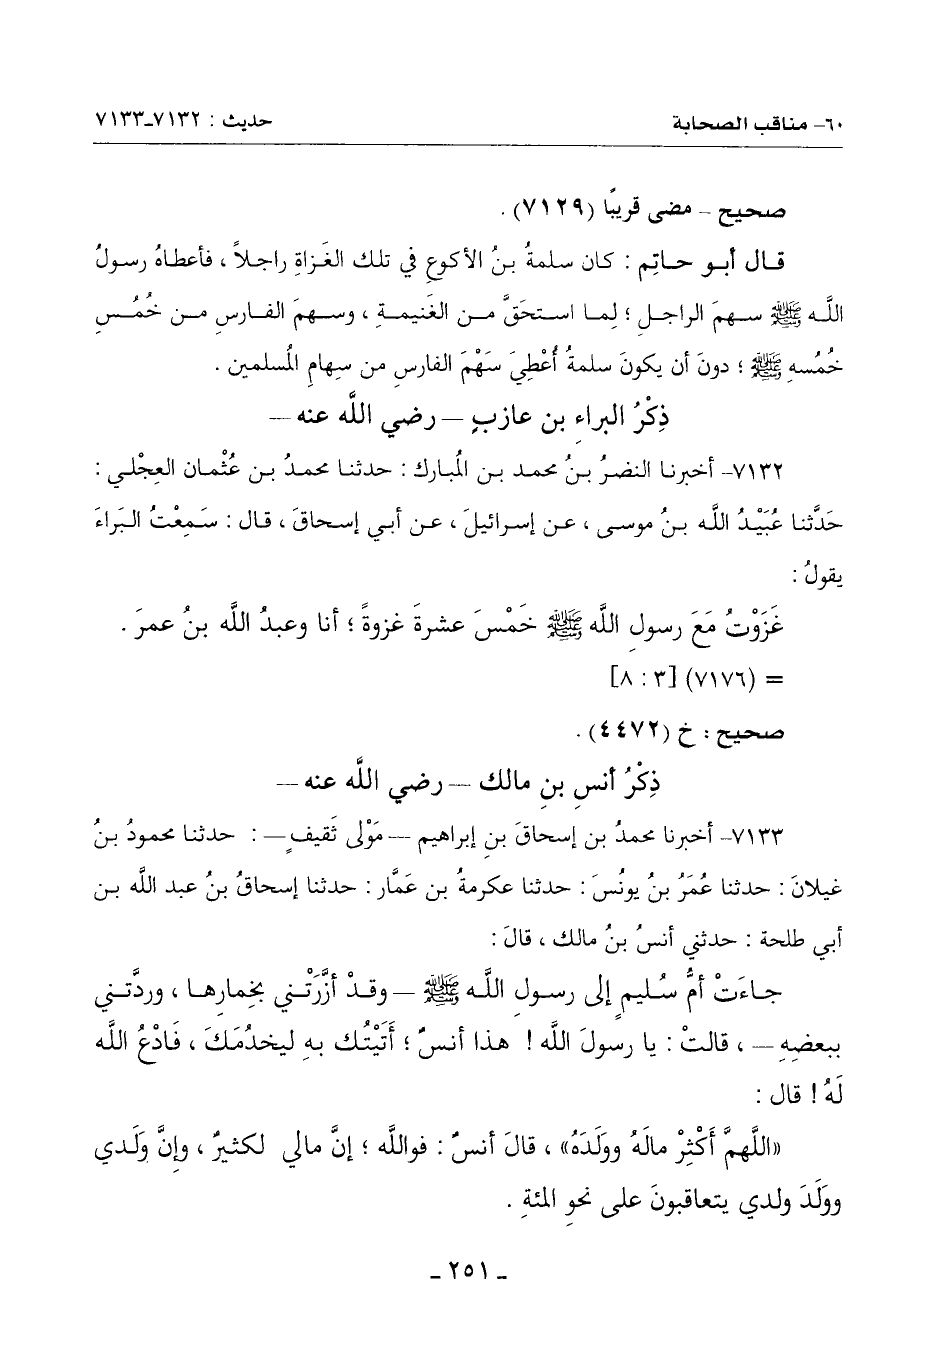 ٦٠- مناقب الصحابة حديث : ٧١٣٢-٧١٣٣
صحيح - مضى قريبًا (٧١٢٩) .
قال أبو حاتِم : كان سلمةُ بنُ الأكوعِ في تلك الغَزاةِ راجلاً ، فأعطاهُ رسولُ
اللَّه ﷺ سهمَ الراجلِ ؛ لِما استحقَّ من الغَنيمةِ ، وسهمَ الفارسِ من خُمُسِ
خُمُسهِ ﷺ ؛ دونَ أن يكونَ سلمةُ أُعْطِيَ سَهْمَ الفارسِ من سِهامِ المُسلمين .
ذِكْرُ البراءِ بن عازبٍ — رضي اللَّه عنه —
٧١٣٢- أخبرنا النضرُ بنُ محمد بن المُبارك : حدثنا محمدُ بن عُثْمان العِجْلي :
حَدَّثنا عُبَيْدُ اللَّه بنُ موسى ، عن إسرائيلَ ، عن أبي إسحاقَ ، قال : سَمِعْتُ البَراءَ
يقولُ :
غَزَوْتُ مَعَ رسولِ اللَّه ﷺ خَمْسَ عشرةَ غزوةً ؛ أنا وعبدُ اللَّه بنُ عمرَ .
= (٧١٧٦) [٣ : ٨]
صحيح : خ (٤٤٧٢) .
ذِكْرُ أنسِ بنِ مالك — رضي اللَّه عنه —
٧١٣٣- أخبرنا محمدُ بن إسحاقَ بنِ إبراهيم — مَوْلى ثَقيفٍ — : حدثنا محمودُ بنُ
غيلانَ : حدثنا عُمَرُ بنُ يونُسَ : حدثنا عكرمةُ بن عَمَّار : حدثنا إسحاقُ بنُ عبد اللَّه بن
أبي طلحة : حدثني أنسُ بنُ مالك ، قالَ :
جاءَتْ أمُّ سُليمٍ إلى رسولِ اللَّه ﷺ — وقدْ أزَّرَتْني بخِمارِها ، وردَّتني
ببعضِهِ — ، قالتْ : يا رسولَ اللَّه ! هذا أنسٌ ؛ أَتَيْتُك بهِ ليخدُمَكَ ، فَادْعُ اللَّه
لَهُ ! قال :
«اللَّهمَّ أَكْثِرْ مالَهُ ووَلَدَهُ» ، قالَ أنسٌ : فواللَّه ؛ إنَّ مالي لكثيرٌ ، وإنَّ وَلَدي
ووَلَدَ ولدي يتعاقبونَ على نحوِ المئةِ .
- ٢٥١ -